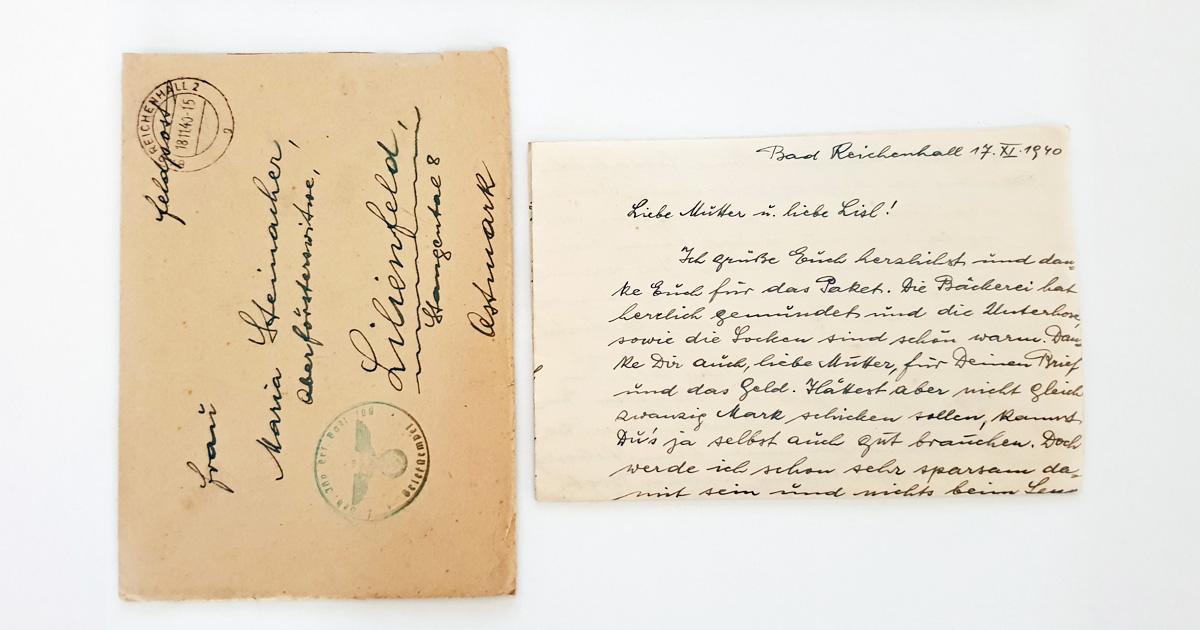 REICHENHALL 2
18.11.40-15
g
Feldpost
Frau
Maria Steinacher,
Oberförsterswitwe,
Lilienfeld,
Stangental 8
Ostmark
Briefstempel
Bad Reichenhall 17. XI. 1940
Liebe Mutter u. liebe Lisl!
Ich grüße Euch herzlichst und dan-
ke Euch für das Paket. Die Bäckerei hat
herrlich gemundet und die Unterhose,
sowie die Socken sind schön warm. Dan-
ke Dir auch, liebe Mutter, für Deinen Brief
und das Geld. Hättest aber nicht gleich
zwanzig Mark schicken sollen, kannst
Du's ja selbst auch gut brauchen. Doch
werde ich schon sehr sparsam da-
mit sein und nichts beim